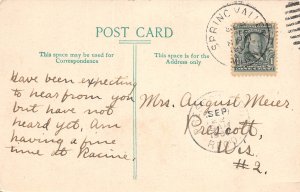 POST CARD
This space may be used for
Correspondence
This space is for the
Address only
SPRING VALL
Have been expecting
to hear from you
but have not
heard yet. Am
having a fine
time at Racine.
Mrs. August Meier,
Prescott,
Wis.
#2.
SEP